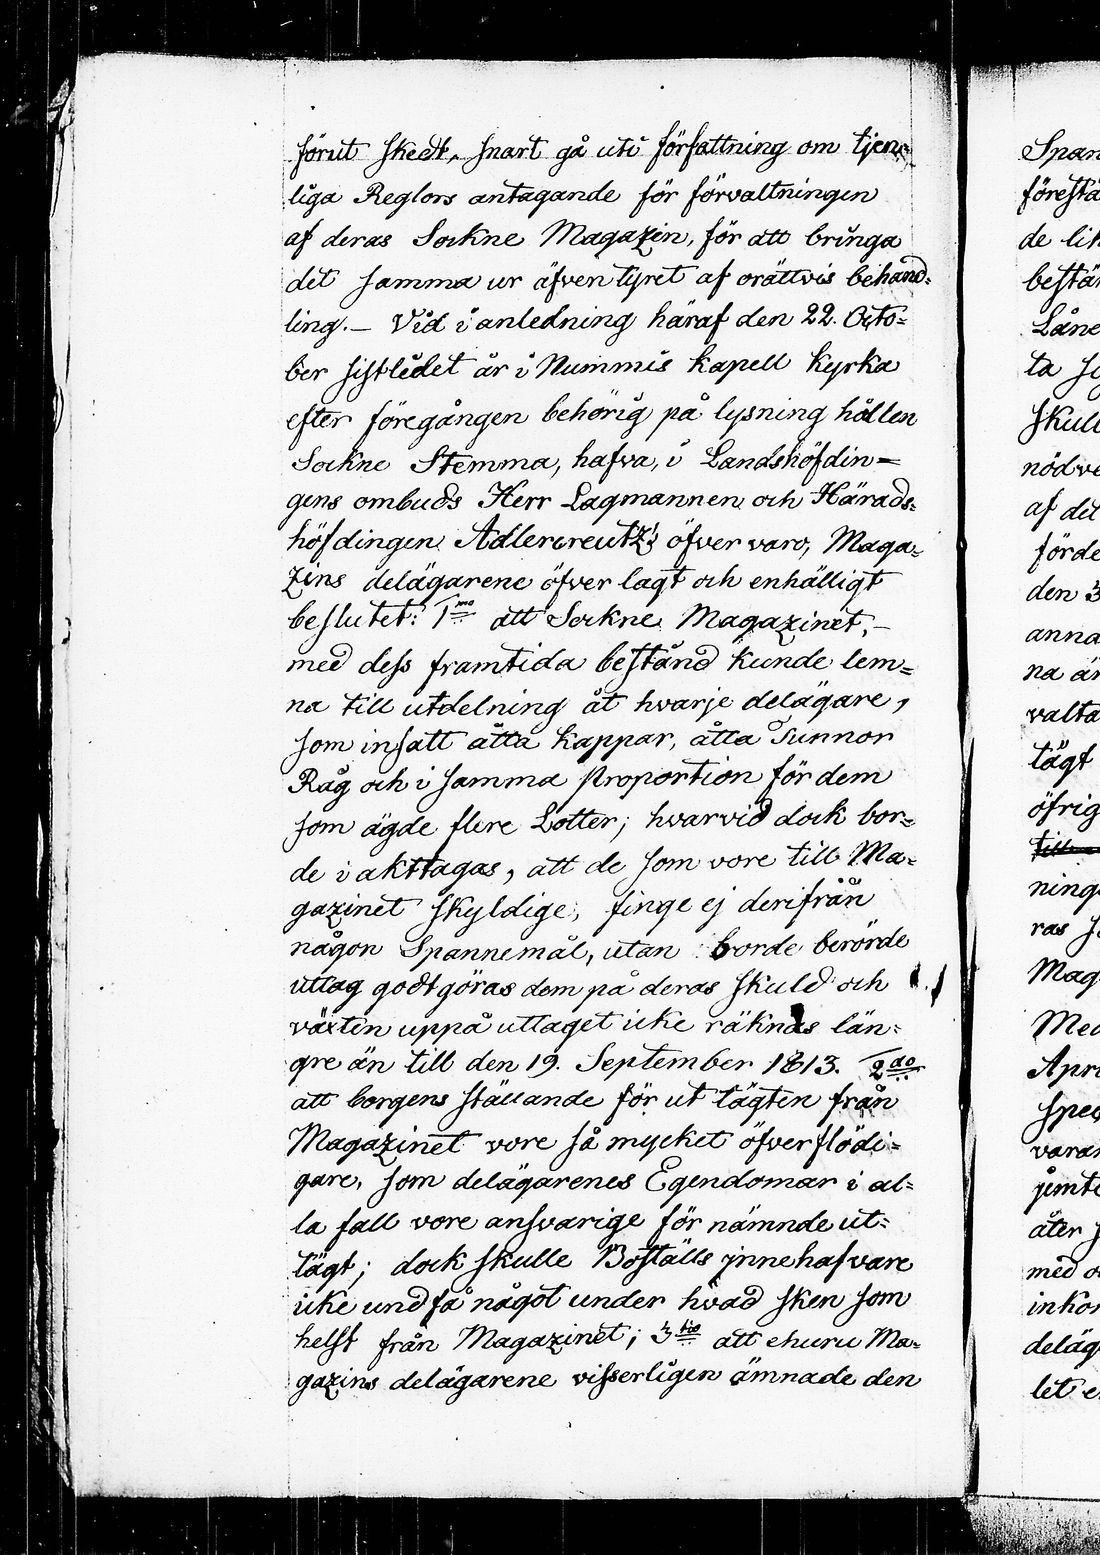 förut skedt, snart gå uti författning om tjen-
liga Reglors antagande för förvaltningen
af deras Sockne Magazin, för att bringa
det samma ur äfventyret af orättvis behand=
ling. – Vid i anledning häraf den 22. Octo=
ber sistledet år i Nummis Kapell Kyrka
efter föregången behörig pålysning hållen
Sockne Stemma, hafva, i Landshöfdin=
gens ombuds Herr Lagmannen och Härads=
höfdingen Adlercreutz's öfvervaro, Maga=
zins delägarene öfverlagt och enhälligt
beslutet: 1mo att Sockne Magazinet, –
med dess framtida bestånd kunde lem=
na till utdelning åt hvarje delägare,
som insatt åtta kappar, åtta Tunnor
Råg och i samma proportion för dem
som ägde flere Lotter; hvarvid dock bor=
de i akttagas, att de som vore till Ma=
gazinet skyldige, finge ej derifrån
någon Spannemål, utan borde berörde
uttag godtgöras dem på deras skuld och
växten uppå uttaget icke räknas län=
gre än till den 19. September 1813. 2do
att borgens ställande för uttägten från
Magazinet vore så mycket öfverflödi=
gare, som delägarenes Egendomar i al=
la fall vore ansvarige för nämnde ut=
tägt; dock skulle Boställs innehafvare
icke undfå något under hvad sken som
helst från Magazinet; 3tio att ehuru Ma=
gazins delägarene visserligen ämnade den
Span
förestå
de lik
bestän
Låne
ta
skull
nödve
af det
förde
den 3
anna
na än
valta
tägt
öfrig
nings
ras
Mag
Med
Apri
spec
varan
jemte
åter
med
inkom
deläg
let